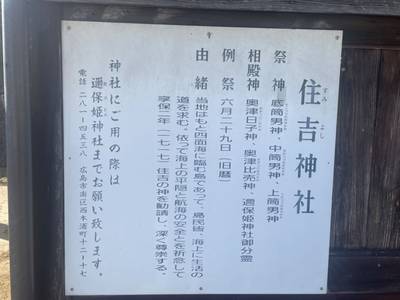 住吉神社
すみ よし
祭神 底筒男神、中筒男神、上筒男神
相殿神 奥津日子神、奥津比売神、邇保姫神社御分霊
例祭 六月二十九日（旧暦）
由緒 当地はもと四面海に臨む島であって、島民皆、海上に生活の
道を求む。依って海上の平隠と航海の安全とを祈念して
享保二年（一七一七）住吉の神を勧請し、深く尊崇する。
神社にご用の際は
邇保姫神社までお願い致します。
電話 二八一ー四五三八 広島市南区西本浦町十二ー十七